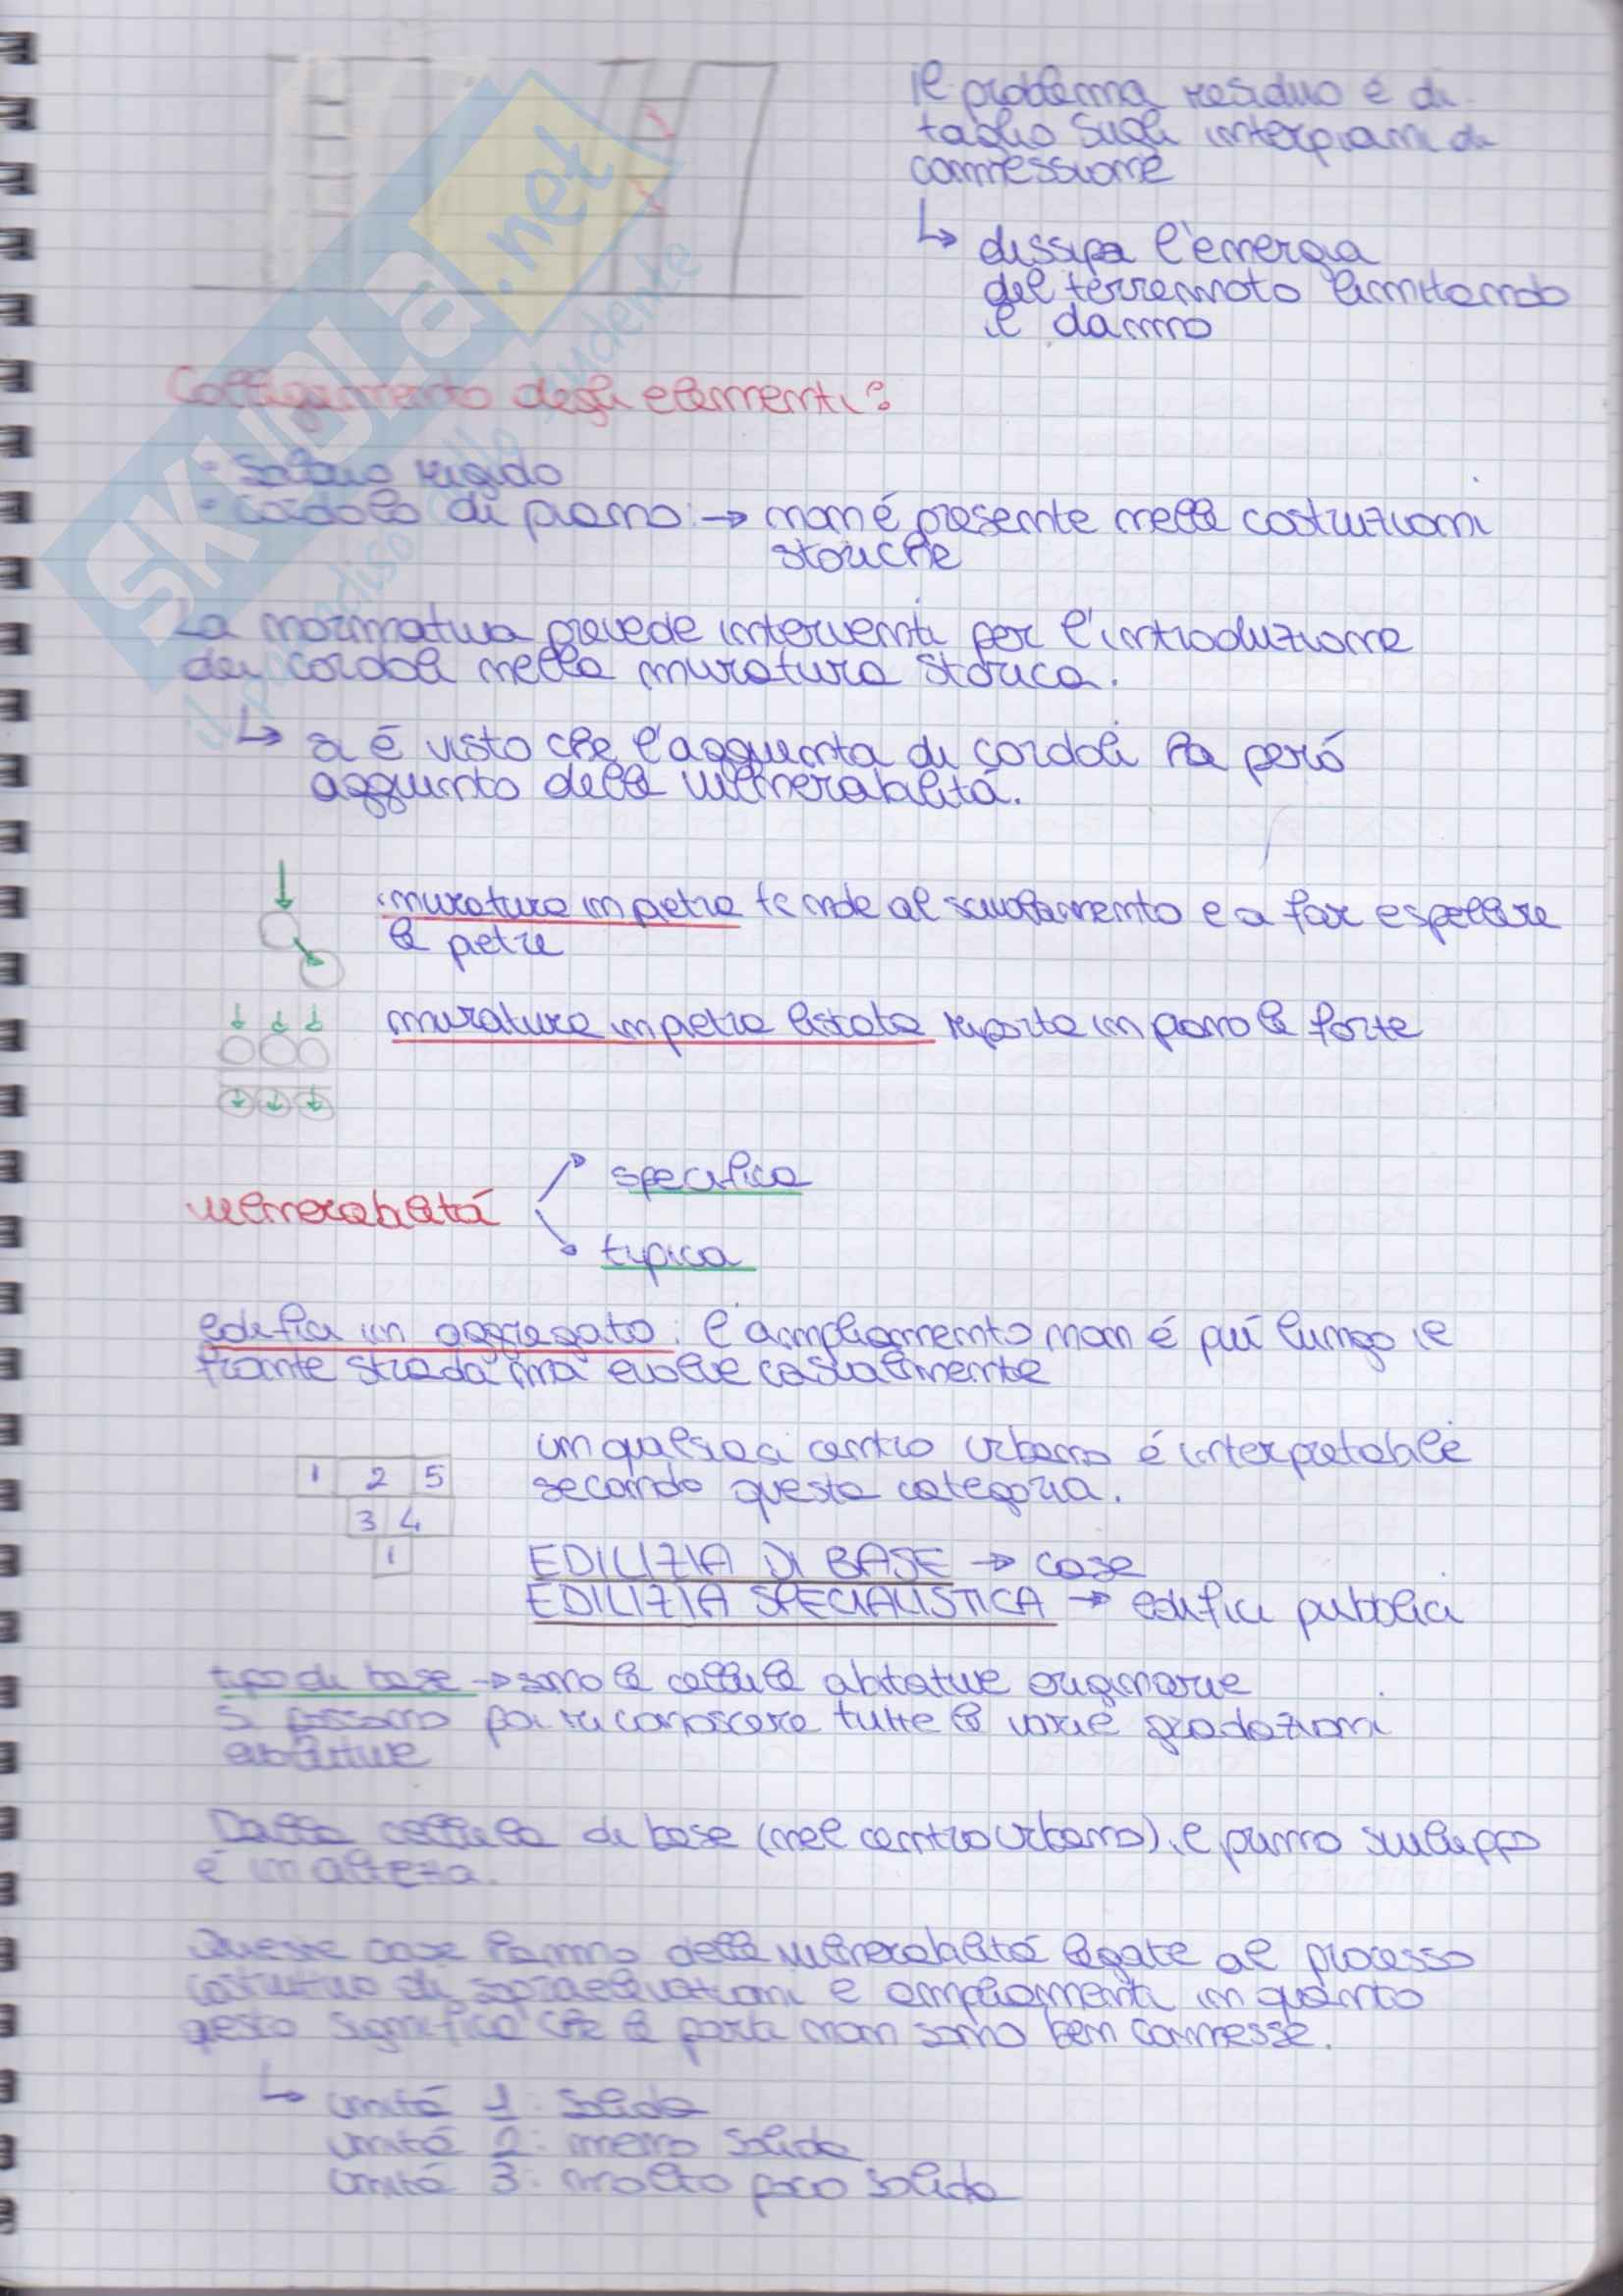 il problema residuo è di
taglio sugli interpiani di
connessione
↳ dissipa l'energia
del terremoto limitando
il danno
Collegamento degli elementi:
- Solaio rigido
- cordolo di piano: → non é presente nelle costruzioni
storiche
La normativa prevede interventi per l'introduzione
dei cordoli nella muratura storica.
↳ si é visto che l'aggiunta di cordoli ha peró
aggiunto delle vulnerabilitá.
muratura in pietra tende al scivolamento e a far espellere
le pietre
muratura in pietra listata riporta in piano le forze
vulnerabilitá
specifica
typica
edifici in aggregato: l'ampliamento non é piú lungo il
fronte strada ma evolve casualmente
un qualsiasi centro urbano é interpretabile
secondo questa categoria.
1 2 5
3 4
1
EDILIZIA DI BASE → case
EDILIZIA SPECIALISTICA → edifici pubblici
tipo di base → sono le cellule abitative originarie
Si possono poi riconoscere tutte le varie gradazioni
evolutive
Dalla cellula di base (nel centro urbano) il primo sviluppo
é in altezza.
Queste case hanno delle vulnerabilitá legate al processo
costruttivo di sopraelevazioni e ampliamenti in quanto
qesto significa che le parti non sono ben connesse.
↳ unitá 1: Solida
unitá 2: meno solida
unitá 3: molto poco solida
SKUOLA.net
il paradiso dello studente